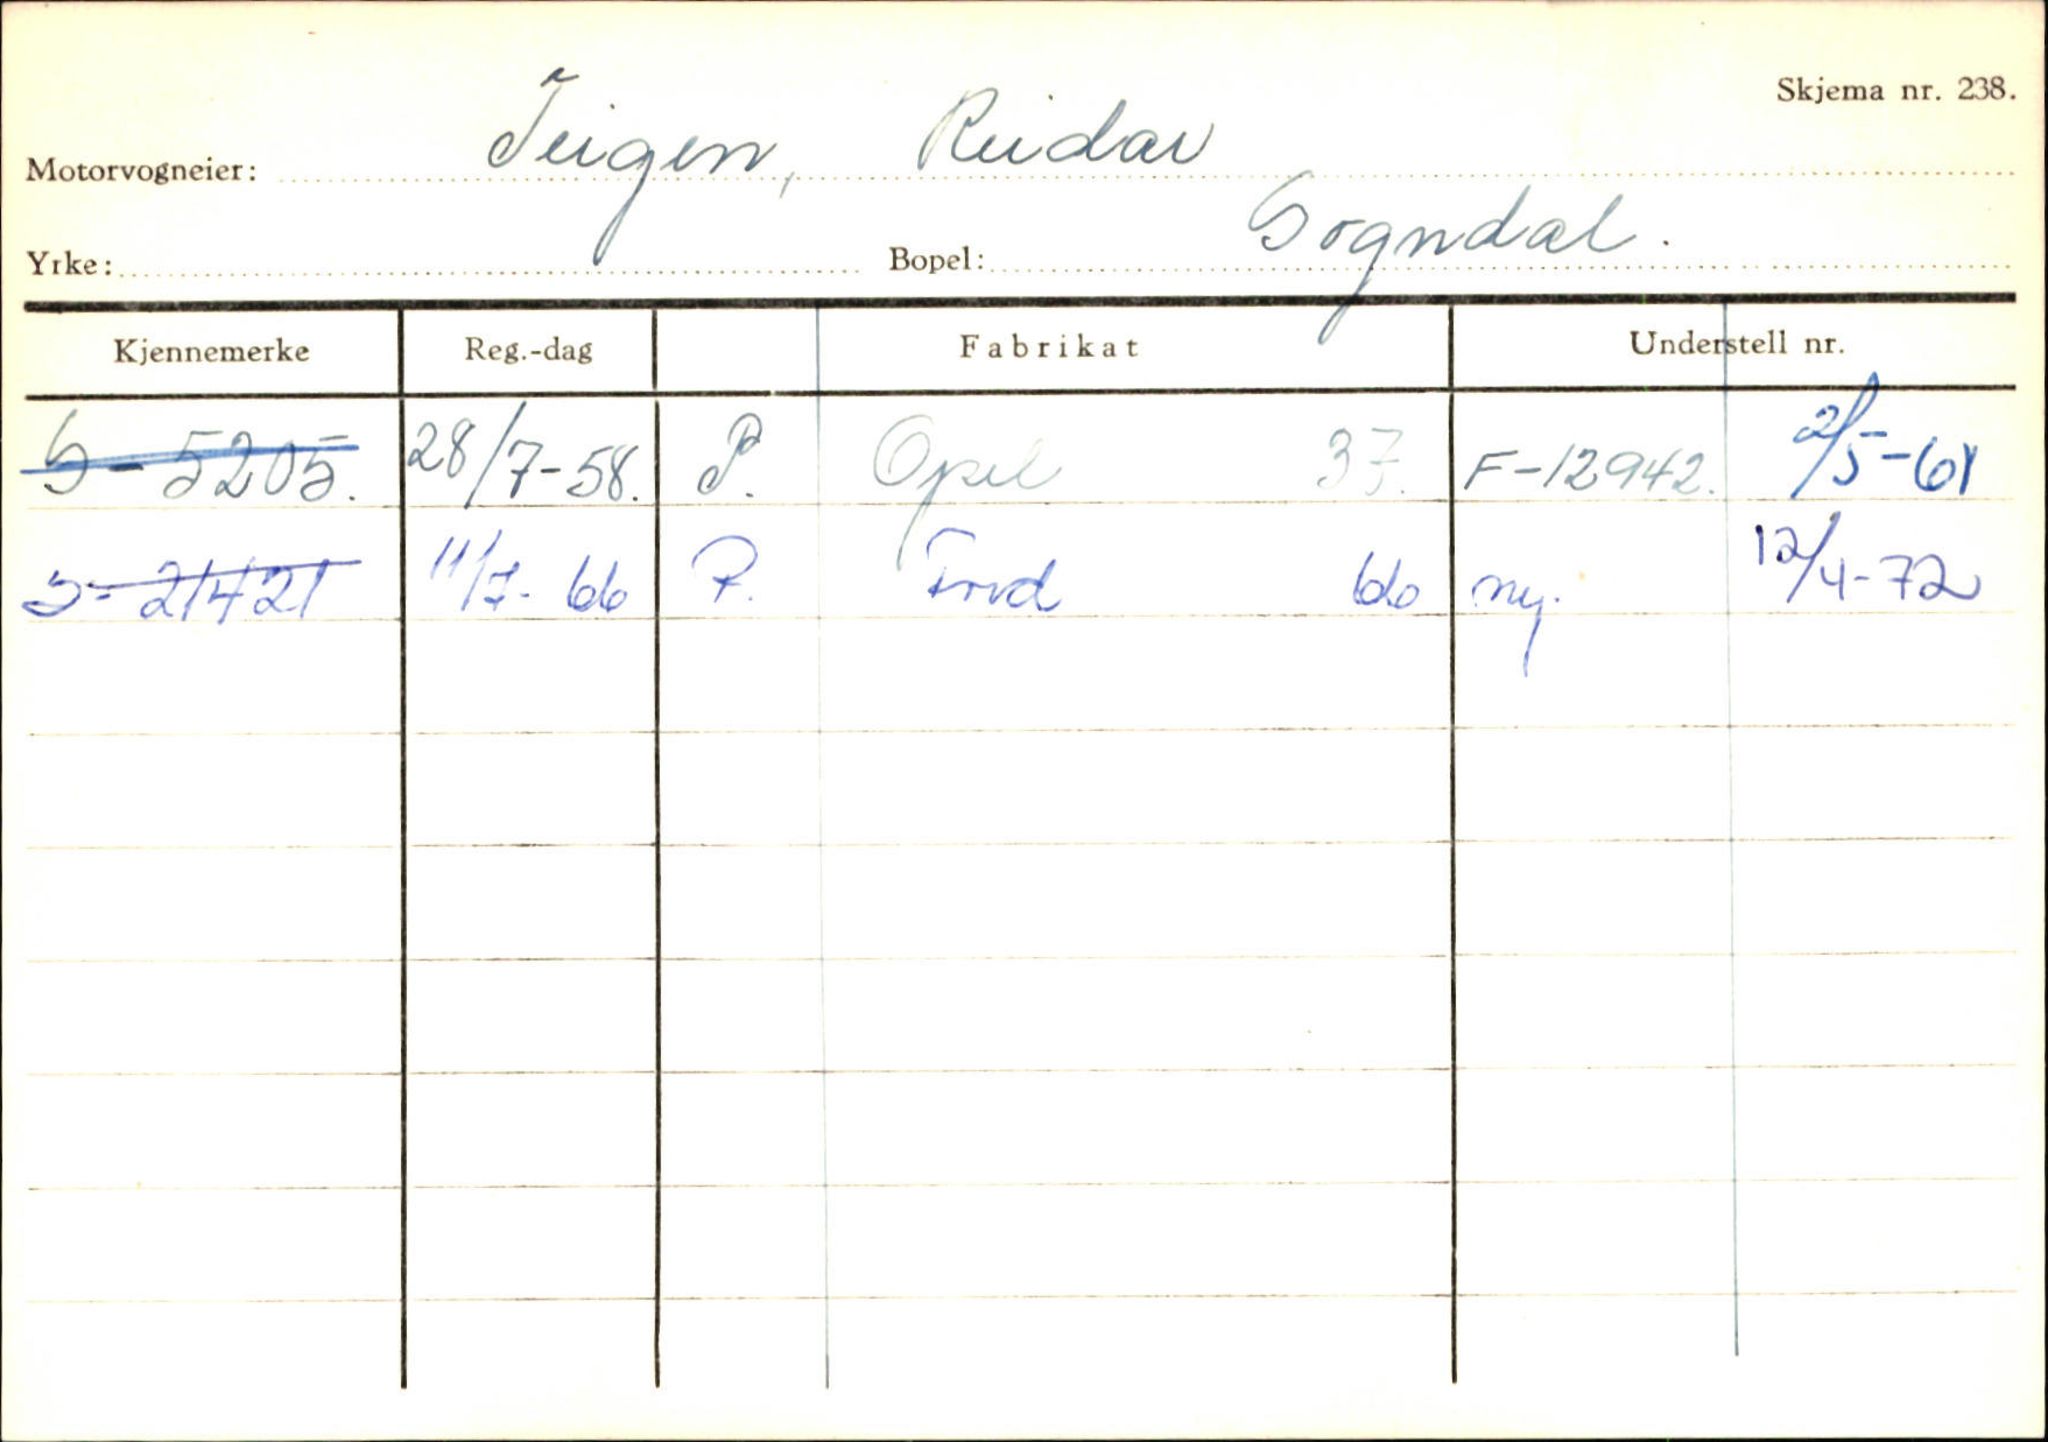 Skjema nr. 238.
Motorvogneier: Teigen, Reidar
Yrke: Bopel: Sogndal.
Kjennemerke Reg.-dag Fabrikat Understell nr.
S-5205. 28/7-58. P. Opel 37. F-12942. 2/5-61
S-21421 11/7-66 P. Ford 66 ny. 12/4-72